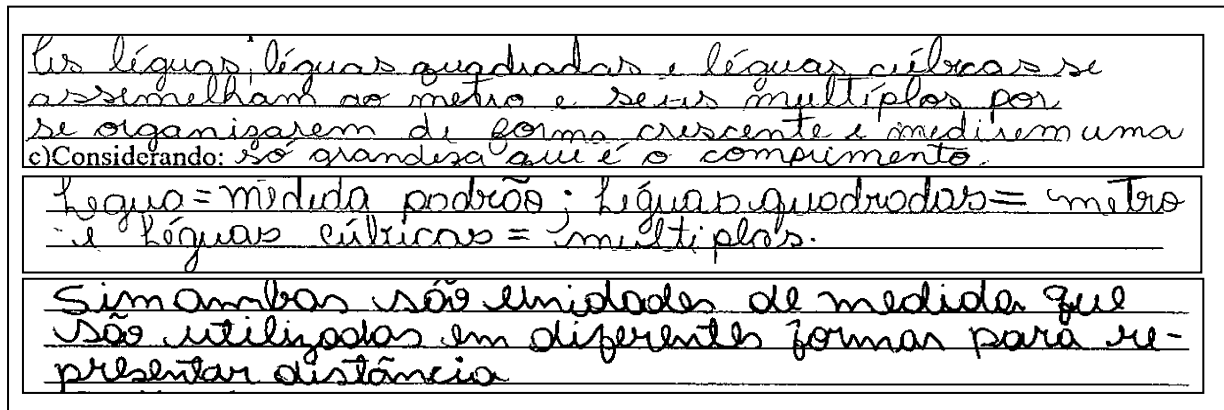 As léguas, léguas quadradas e léguas cúbicas se
assemelham ao metro e seus multíplos por
se organizarem de forma crescente e medirem uma
c)Considerando: só grandeza que é o comprimento.
Legua = medida padrão; Léguas quadradas = metro
e Léguas cúbicas = multiplos.
Sim ambas são unidades de medida que
são utilizadas em diferentes formas para re-
presentar distância